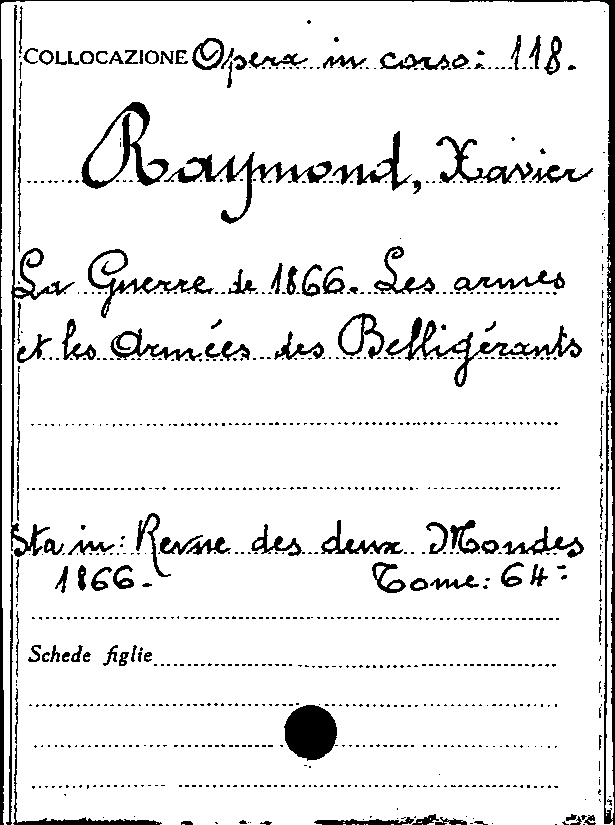 COLLOCAZIONE Opera in corso: 118.
Raymond, Xavier
La Guerre de 1866. Les armes
et les Armées des Belligérants
Sta in: Revue des deux Mondes
1866.- Tome: 64=
Schede figlie